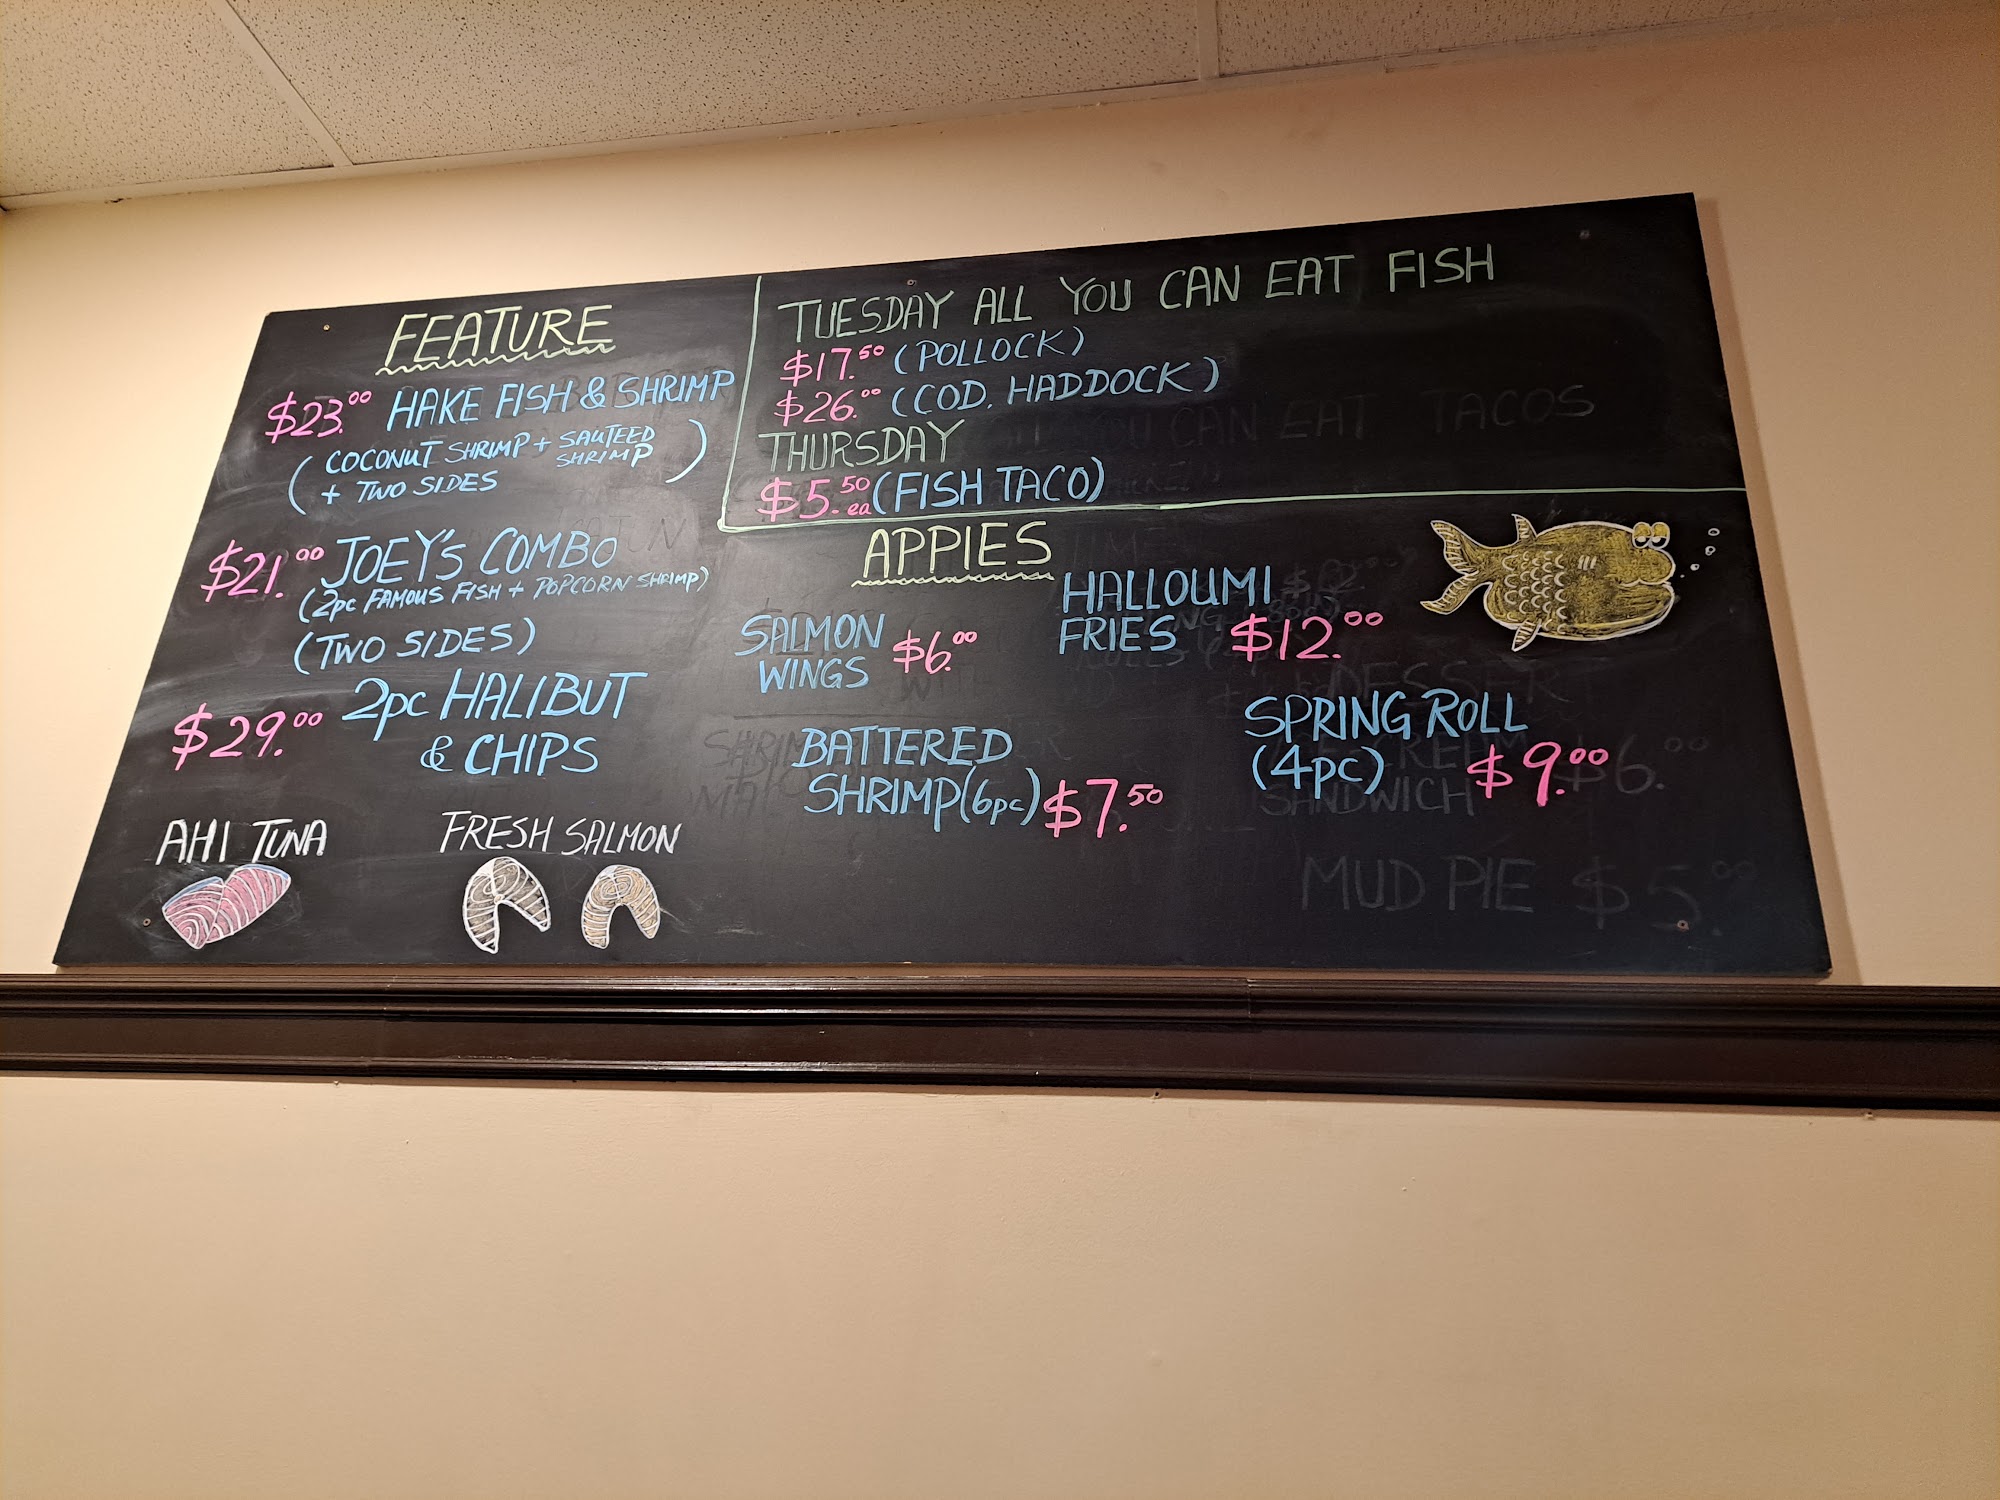 FEATURE
$23.00 HAKE FISH & SHRIMP
(COCONUT SHRIMP + SAUTEED SHRIMP
+ TWO SIDES)
$21.00 JOEY'S COMBO
(2pc FAMOUS FISH + POPCORN SHRIMP)
(TWO SIDES)
$29.00 2pc HALIBUT
& CHIPS
AHI TUNA
FRESH SALMON
TUESDAY ALL YOU CAN EAT FISH
$17.50 (POLLOCK)
$26.00 (COD, HADDOCK)
THURSDAY
$5.50 ea (FISH TACO)
APPIES
SALMON
WINGS $6.00
HALLOUMI
FRIES $12.00
BATTERED
SHRIMP (6pc) $7.50
SPRING ROLL
(4pc) $9.00
YOU CAN EAT TACOS
DESSERT
ICE CREAM
SANDWICH $6.00
MUD PIE $5.00